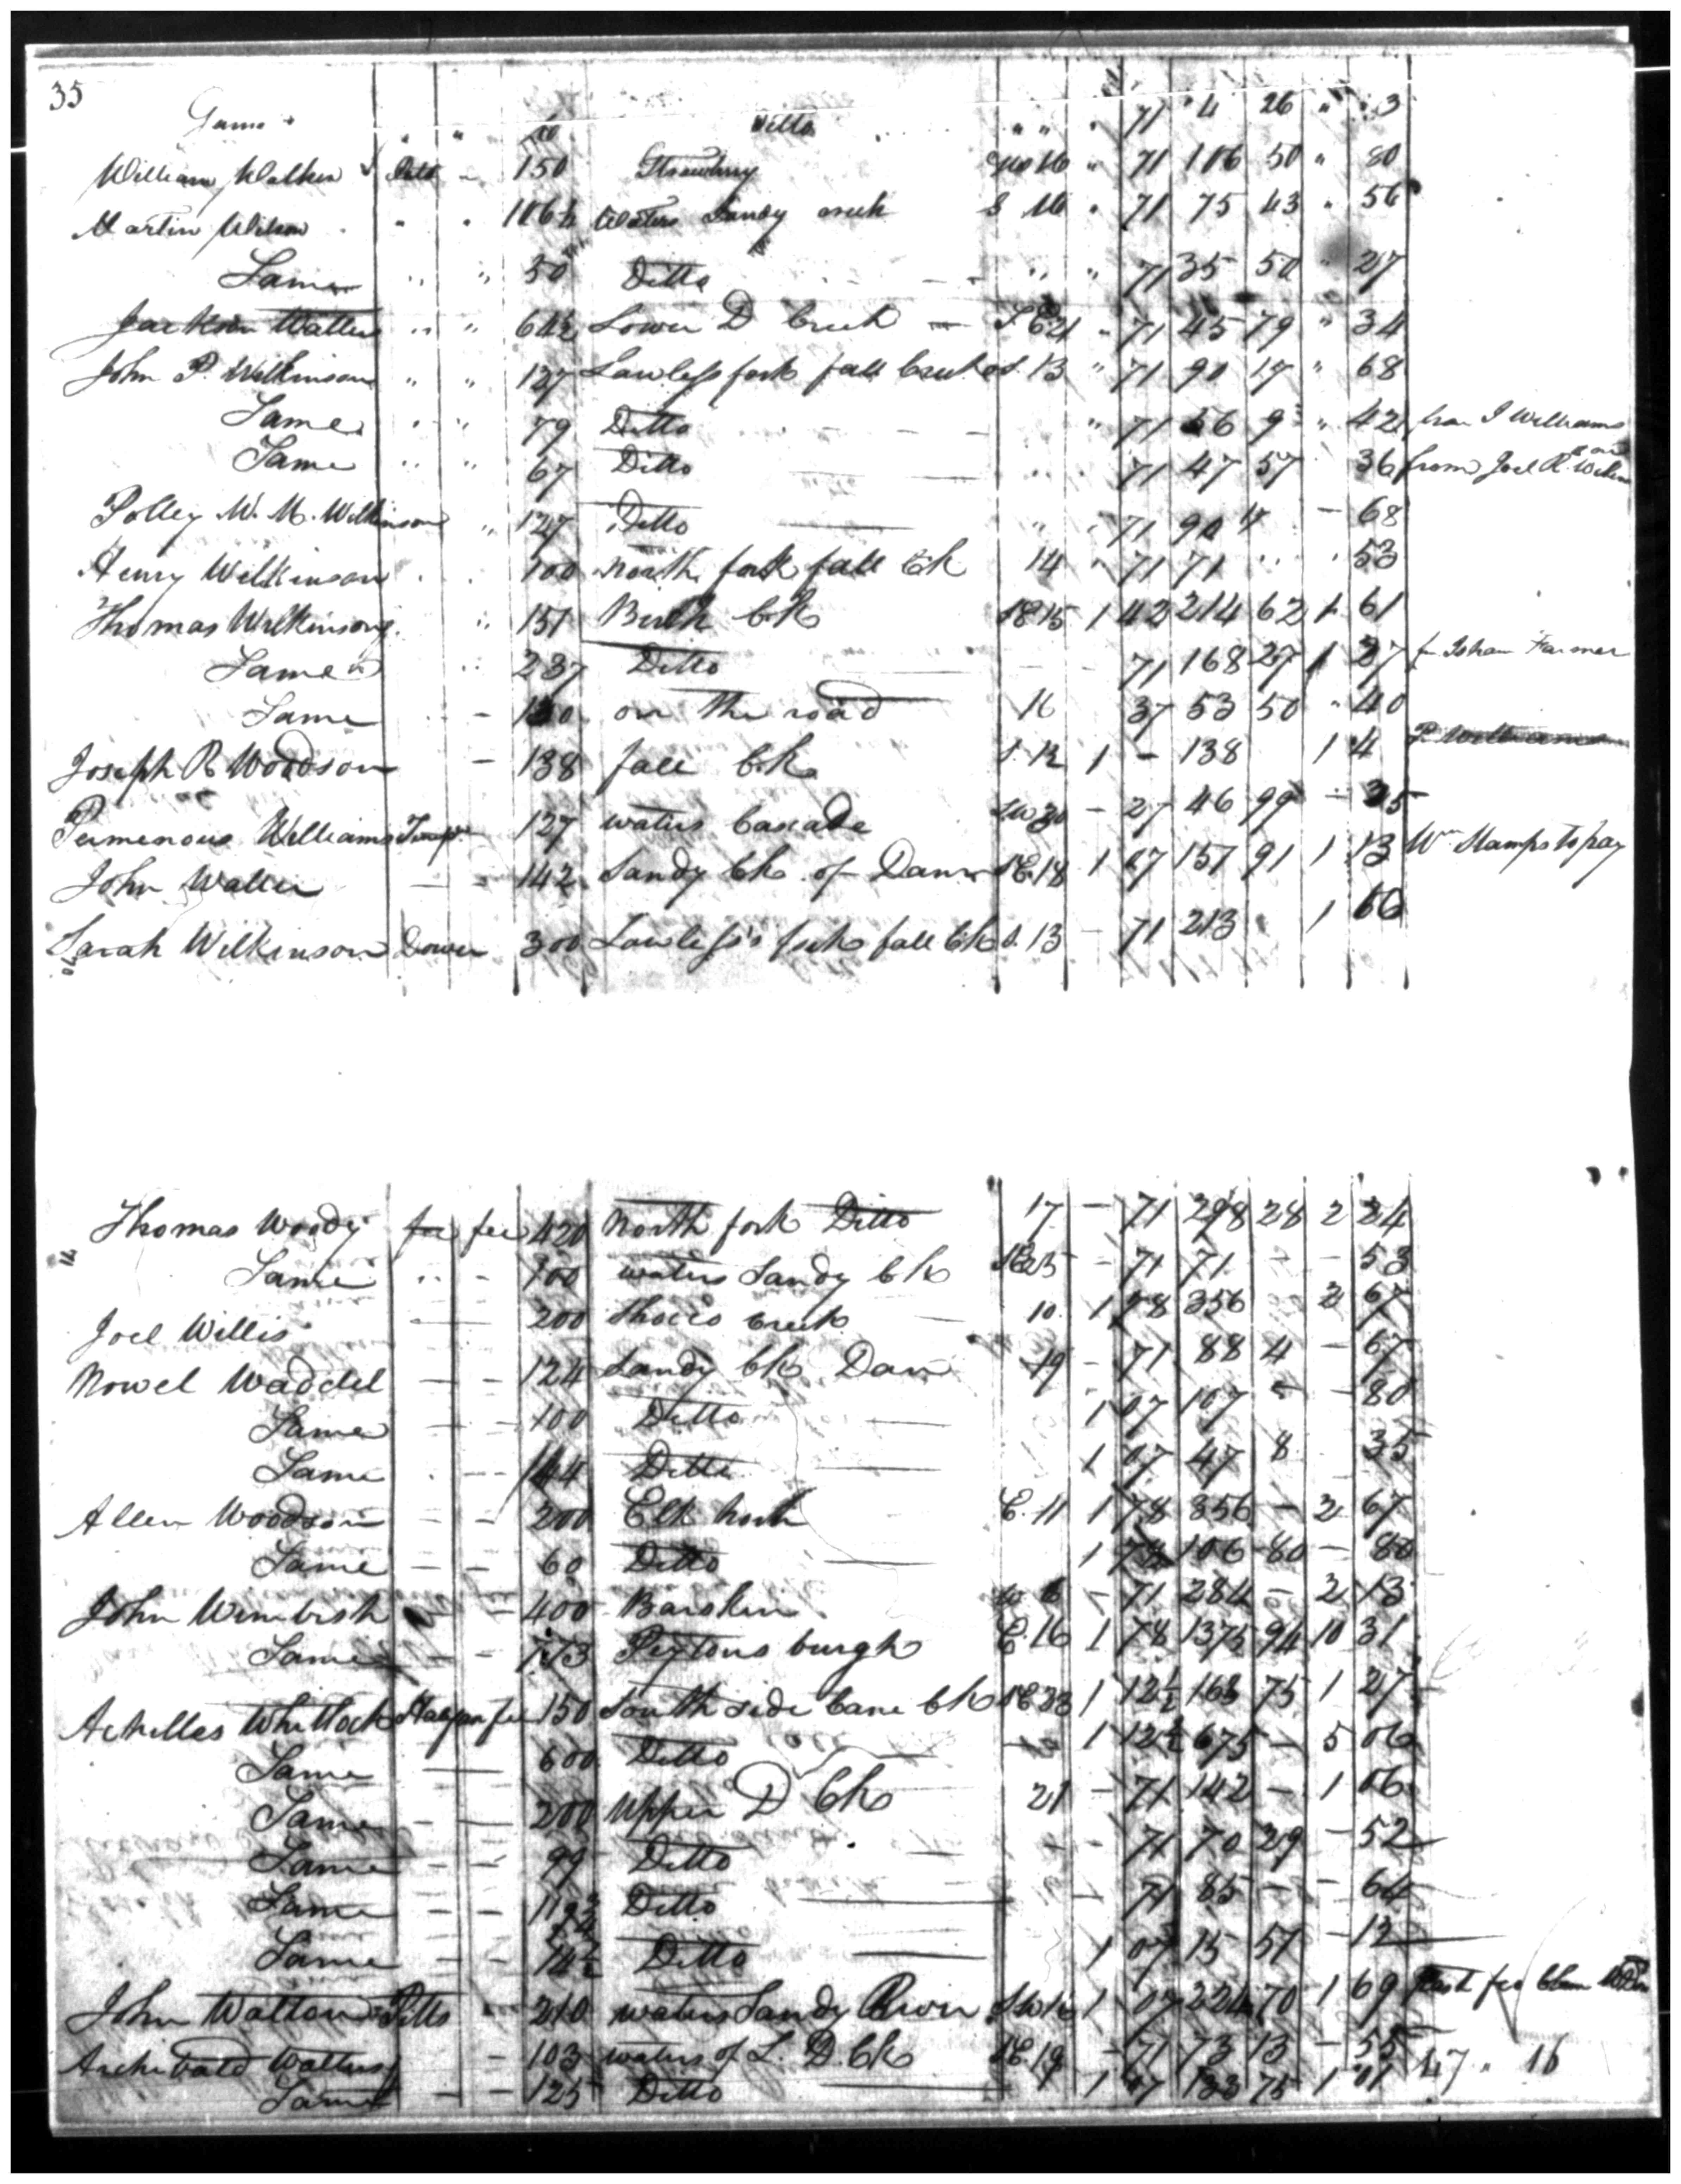 35
Same " " Ditto " " " 71 4 26 " 3
William Walker Pitts - 150 Strawberry 16 " 71 106 50 " 80
Martin Wilson " " 106½ Waters Sandy creek S 16 " 71 75 43 " 56
Same " " 50 Ditto - - " " 71 35 50 " 27
Jackson Walters " " 64½ Lower D Creek - S.E 21 " 71 45 79 " 34
John P. Wilkinson " " 127 Lawless fork fall Creek S. 13 " 71 90 17 " 68
Same " " 79 Ditto - - - " 71 56 9 " 42 J Williams
Same " " 67 Ditto 71 47 57 36 from Joel R.
Polley W. M. Wilkinson " 127 Ditto " " 71 90 17 - 68
Henry Wilkinson 100 North fork fall Ck 14 " 71 71 53
Thomas Wilkinson " 151 Birch Ck N.E 15 1 42 214 62 1 61
Same " 237 Ditto - - 71 168 27 1 27 Farmer
Same - on the road 16 37 53 50 " 40
Joseph R Woodson - 138 fall Ck S. 12 1 - 138 1 4
Permenous Williams 127 waters Cascade SW 30 - 27 46 99 - 35
John Waller - - 142 Sandy Ck of Dann N.E. 18 1 07 151 91 1 13 Wm Stamps to pay
Sarah Wilkinson Dower 300 Lawless's fork fall Ck S. 13 - 71 213 1 60
Thomas Woody fee 420 North fork Ditto 17 - 71 298 28 2 24
Same " - 100 waters Sandy Ck N.E 25 - 71 71 - - 53
Joel Willis 200 creek 10 1 78 356 2 67
Nowel Waddel - - 124 Sandy Ck Dan 19 - 71 88 4 - 67
Same - - 100 Ditto 1 07 107 - - 80
Same - - 44 Ditto 1 07 47 8 35
Allen Woodson - - 200 Elk horn E. 11 1 78 356 - 2 67
Same - - 60 Ditto 1 78 106 80 - 80
John Wimbish - 400 Barskin W 6 - 71 284 - 2 13
Same - - 773 Peytons burgh E. 16 1 78 1375 94 10 31
Achilles Whitlock Halifax fee 150 South side Cane Ck N.E 23 1 12½ 168 75 1 27
Same 600 Ditto 1 12½ 675 - 5 06
Same - - 200 Upper D Ck 21 - 71 142 - 1 06
Same - - 99 Ditto - - 71 70 29 - 52
Same - - 119¾ Ditto - 71 85 - - 64
Same - - 14½ Ditto 1 07 15 51 - 12
John Walton Pitts - 210 waters Sandy River S.W 1 07 224 70 1 69
Archibald Walters - 103 waters of L. D. Ck N.E. 19 - 71 73 13 - 55 47 " 16
Same - - 125 Ditto 1 07 133 75 1 01